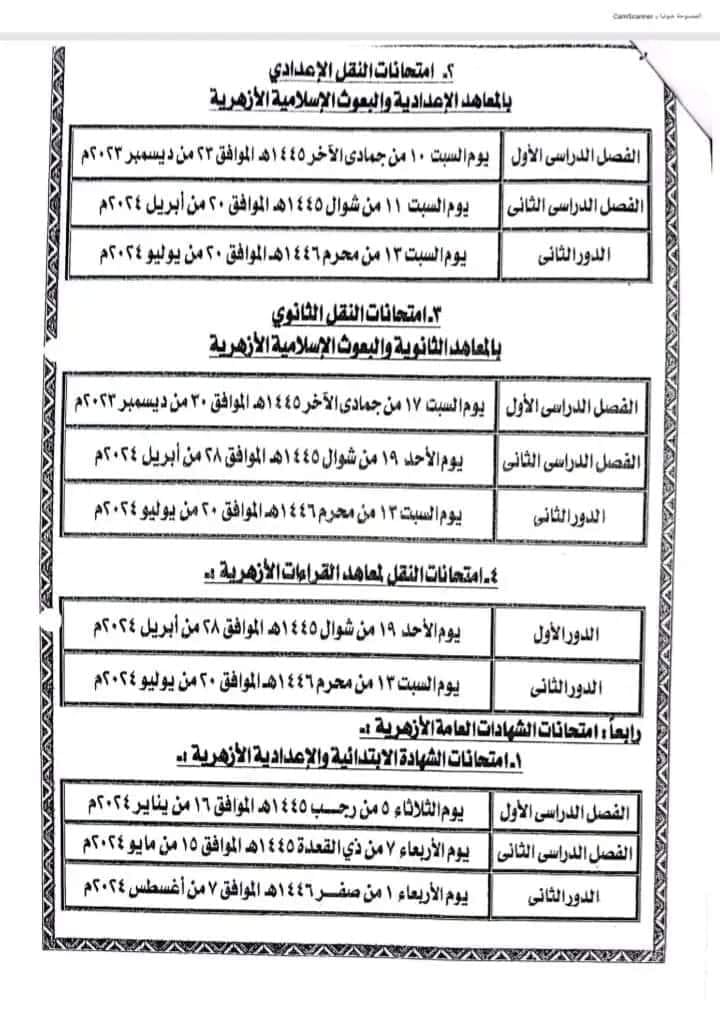 الممسوحة ضوئيا بـ CamScanner
٢ـ امتحانات النقل الإعدادي
بالمعاهد الإعدادية والبعوث الإسلامية الأزهرية
الفصل الدراسى الأول يوم السبت ١٠ من جمادى الآخر ١٤٤٥هـ الموافق ٢٣ من ديسمبر ٢٠٢٣م
الفصل الدراسى الثانى يوم السبت ١١ من شوال ١٤٤٥هـ الموافق ٢٠ من أبريل ٢٠٢٤م
الدور الثانى يوم السبت ١٣ من محرم ١٤٤٦هـ الموافق ٢٠ من يوليو ٢٠٢٤م
٣ـ امتحانات النقل الثانوي
بالمعاهد الثانوية والبعوث الإسلامية الأزهرية
الفصل الدراسى الأول يوم السبت ١٧ من جمادى الآخر ١٤٤٥هـ الموافق ٣٠ من ديسمبر ٢٠٢٣م
الفصل الدراسى الثانى يوم الأحد ١٩ من شوال ١٤٤٥هـ الموافق ٢٨ من أبريل ٢٠٢٤م
الدور الثانى يوم السبت ١٣ من محرم ١٤٤٦هـ الموافق ٢٠ من يوليو ٢٠٢٤م
٤ـ امتحانات النقل لمعاهد القراءات الأزهرية :ـ
الدور الأول يوم الأحد ١٩ من شوال ١٤٤٥هـ الموافق ٢٨ من أبريل ٢٠٢٤م
الدور الثانى يوم السبت ١٣ من محرم ١٤٤٦هـ الموافق ٢٠ من يوليو ٢٠٢٤م
رابعاً : امتحانات الشهادات العامة الأزهرية :ـ
١ـ امتحانات الشهادة الابتدائية والإعدادية الأزهرية :ـ
الفصل الدراسى الأول يوم الثلاثاء ٥ من رجـــب ١٤٤٥هـ الموافق ١٦ من يناير ٢٠٢٤م
الفصل الدراسى الثانى يوم الأربعاء ٧ من ذي القعدة ١٤٤٥هـ الموافق ١٥ من مايو ٢٠٢٤م
الدور الثانى يوم الأربعاء ١ من صفـــر ١٤٤٦هـ الموافق ٧ من أغسطس ٢٠٢٤م